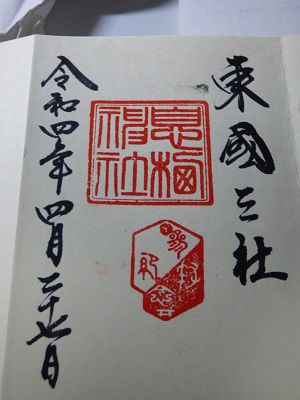 東國三社
息栖
神社
令和四年四月二十七日